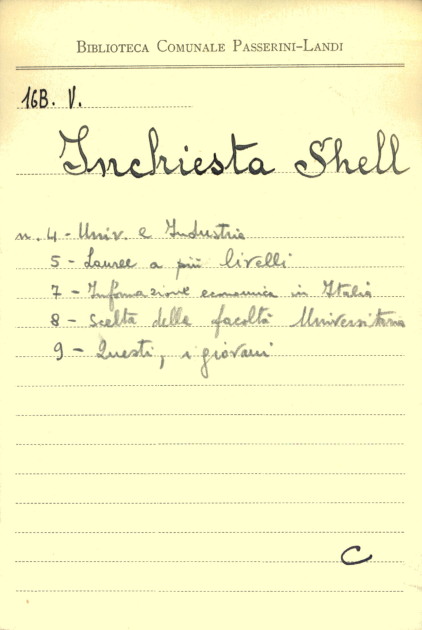 BIBLIOTECA COMUNALE PASSERINI-LANDI
16B. V.
Inchiesta Shell
n. 4 - Univ. e Industria
5 - Lauree a più livelli
7 - Informazione economica in Italia
8 - Scelta della facoltà Universitaria
9 - Questi, i giovani
C